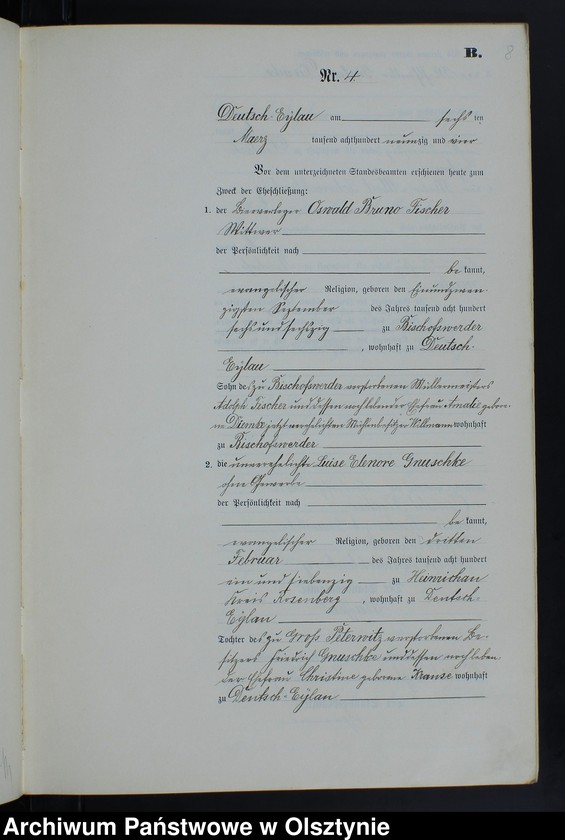 B. 8
Nr. 4
Deutsch-Eylau am sechs ten
Maerz tausend achthundert neunzig und vier
Vor dem unterzeichneten Standesbeamten erschienen heute zum
Zweck der Eheschließung:
1. der Bierverleger Oswald Bruno Fischer
Wittwer
der Persönlichkeit nach
be kannt,
evangelischer Religion, geboren den einundzwan
zigsten September des Jahres tausend acht hundert
sechs und sechszig zu Bischofswerder
, wohnhaft zu Deutsch-
Eylau
Sohn des zu Bischofswerder verstorbenen Mühlenmeisters
Adolph Fischer und dessen noch lebender Ehefrau Amalie gebore-
ne jetzt verehelichten Mühlenbesitzer Willmann wohnhaft
zu Bischofswerder
2. die unverehelichte Luise Elenore Gnuschke
ohne Gewerbe
der Persönlichkeit nach
be kannt,
evangelischer Religion, geboren den dritten
Februar des Jahres tausend acht hundert
ein und siebenzig zu Heinrichau
Kreis Rosenberg , wohnhaft zu Deutsch-
Eylau
Tochter des zu Groß Peterwitz verstorbenen Be-
sitzers Friedrich Gnuschke und dessen noch leben
der Ehefrau Christine geborene Krause wohnhaft
zu Deutsch-Eylau
Archiwum Państwowe w Olsztynie